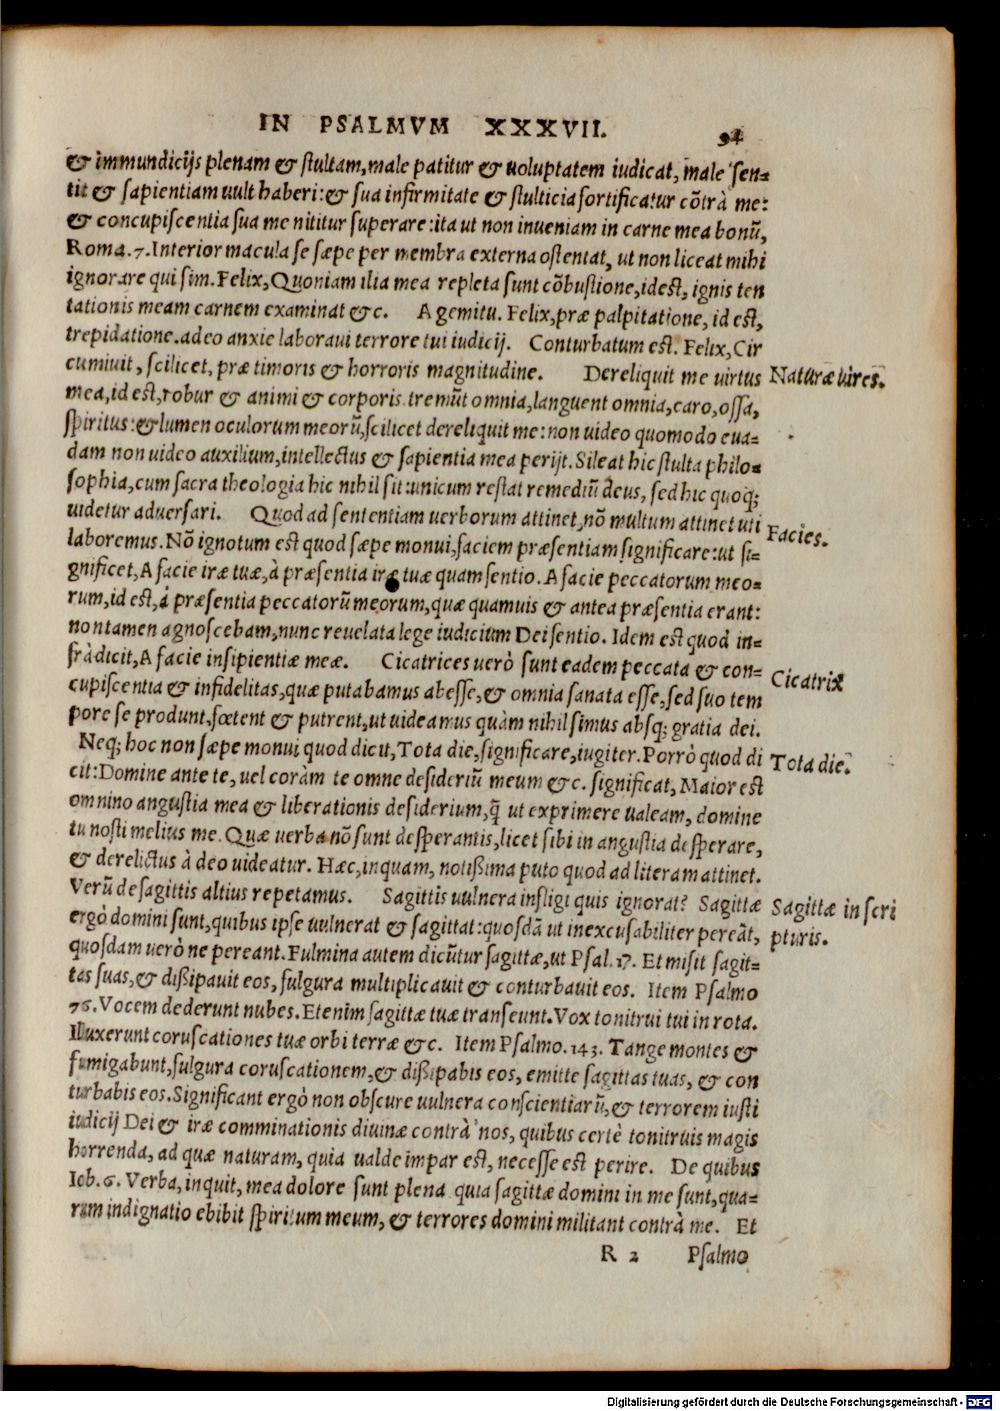 IN PSALMVM XXXVII. 94
& immundicijs plenam & stultam, male patitur & uoluptatem iudicat, male sen-
tit & sapientiam uult haberi: & sua infirmitate & stulticia fortificatur cõtrà me:
& concupiscentia sua me nititur superare: ita ut non inueniam in carne mea bonũ,
Roma. 7. Interior macula se sæpe per membra externa ostentat, ut non liceat mihi
ignorare qui sim. Felix, Quoniam ilia mea repleta sunt cõbustione, id est, ignis ten
tationis meam carnem examinat &c. A gemitu. Felix, præ palpitatione, id est,
trepidatione. adeo anxie laboraui terrore tui iudicij. Conturbatum est. Felix, Cir
cumiuit, scilicet, præ timoris & horroris magnitudine. Dereliquit me uirtus
Naturæ uires.
mea, id est, robur & animi & corporis tremũt omnia, languent omnia, caro, ossa,
spiritus: & lumen oculorum meorũ, scilicet dereliquit me: non uideo quomodo eua-
dam non uideo auxilium, intellectus & sapientia mea perijt. Sileat hic stulta philo-
sophia, cum sacra theologia hic nihil sit: unicum restat remediũ deus, sed hic quoq;
uidetur aduersari. Quod ad sententiam uerborum attinet, nõ multum attinet uti
Facies.
laboremus. Nõ ignotum est quod sæpe monui, faciem præsentiam significare: ut si-
gnificet, A facie iræ tuæ, à præsentia iræ tuæ quam sentio. A facie peccatorum meo-
rum, id est, à præsentia peccatorũ meorum, quæ quamuis & antea præsentia erant:
non tamen agnoscebam, nunc reuelata lege iudicium Dei sentio. Idem est quod in-
frà dicit, A facie insipientiæ meæ. Cicatrices uerò sunt eadem peccata & con-
Cicatrix
cupiscentia & infidelitas, quæ putabamus abesse, & omnia sanata esse, sed suo tem
pore se produnt, fœtent & putrent, ut uideamus quàm nihil simus absq; gratia dei.
Neq; hoc non sæpe monui quod dicit, Tota die, significare, iugiter. Porrò quod di
Tota die.
cit: Domine ante te, uel coràm te omne desideriũ meum &c. significat, Maior est
omnino angustia mea & liberationis desiderium, q̃ ut exprimere ualeam, domine
tu nosti melius me. Quæ uerba nõ sunt desperantis, licet sibi in angustia desperare,
& derelictus à deo uideatur. Hæc, inquam, notißima puto quod ad literam attinet.
Verũ de sagittis altius repetamus. Sagittis uulnera infligi quis ignorat? Sagittæ
Sagittæ in scri
pturis.
ergò domini sunt, quibus ipse uulnerat & sagittat: quosdã ut inexcusabiliter pereãt,
quosdam uerò ne pereant. Fulmina autem dicũtur sagittæ, ut Psal. 17. Et misit sagit-
tas suas, & dißipauit eos, fulgura multiplicauit & conturbauit eos. Item Psalmo
76. Vocem dederunt nubes. Etenim sagittæ tuæ transeunt. Vox tonitrui tui in rota.
Illuxerunt coruscationes tuæ orbi terræ &c. Item Psalmo. 143. Tange montes &
fumigabunt, fulgura coruscationem, & dißipabis eos, emitte sagittas tuas, & con
turbabis eos. Significant ergò non obscure uulnera conscientiarũ, & terrorem iusti
iudicij Dei & iræ comminationis diuinæ contrà nos, quibus certè tonitruis magis
horrenda, ad quæ naturam, quia ualde impar est, necesse est perire. De quibus
Iob. 6. Verba, inquit, mea dolore sunt plena quia sagittæ domini in me sunt, qua-
rum indignatio ebibit spiritum meum, & terrores domini militant contrà me. Et
R 2 Psalmo
Digitalisierung gefördert durch die Deutsche Forschungsgemeinschaft - DFG